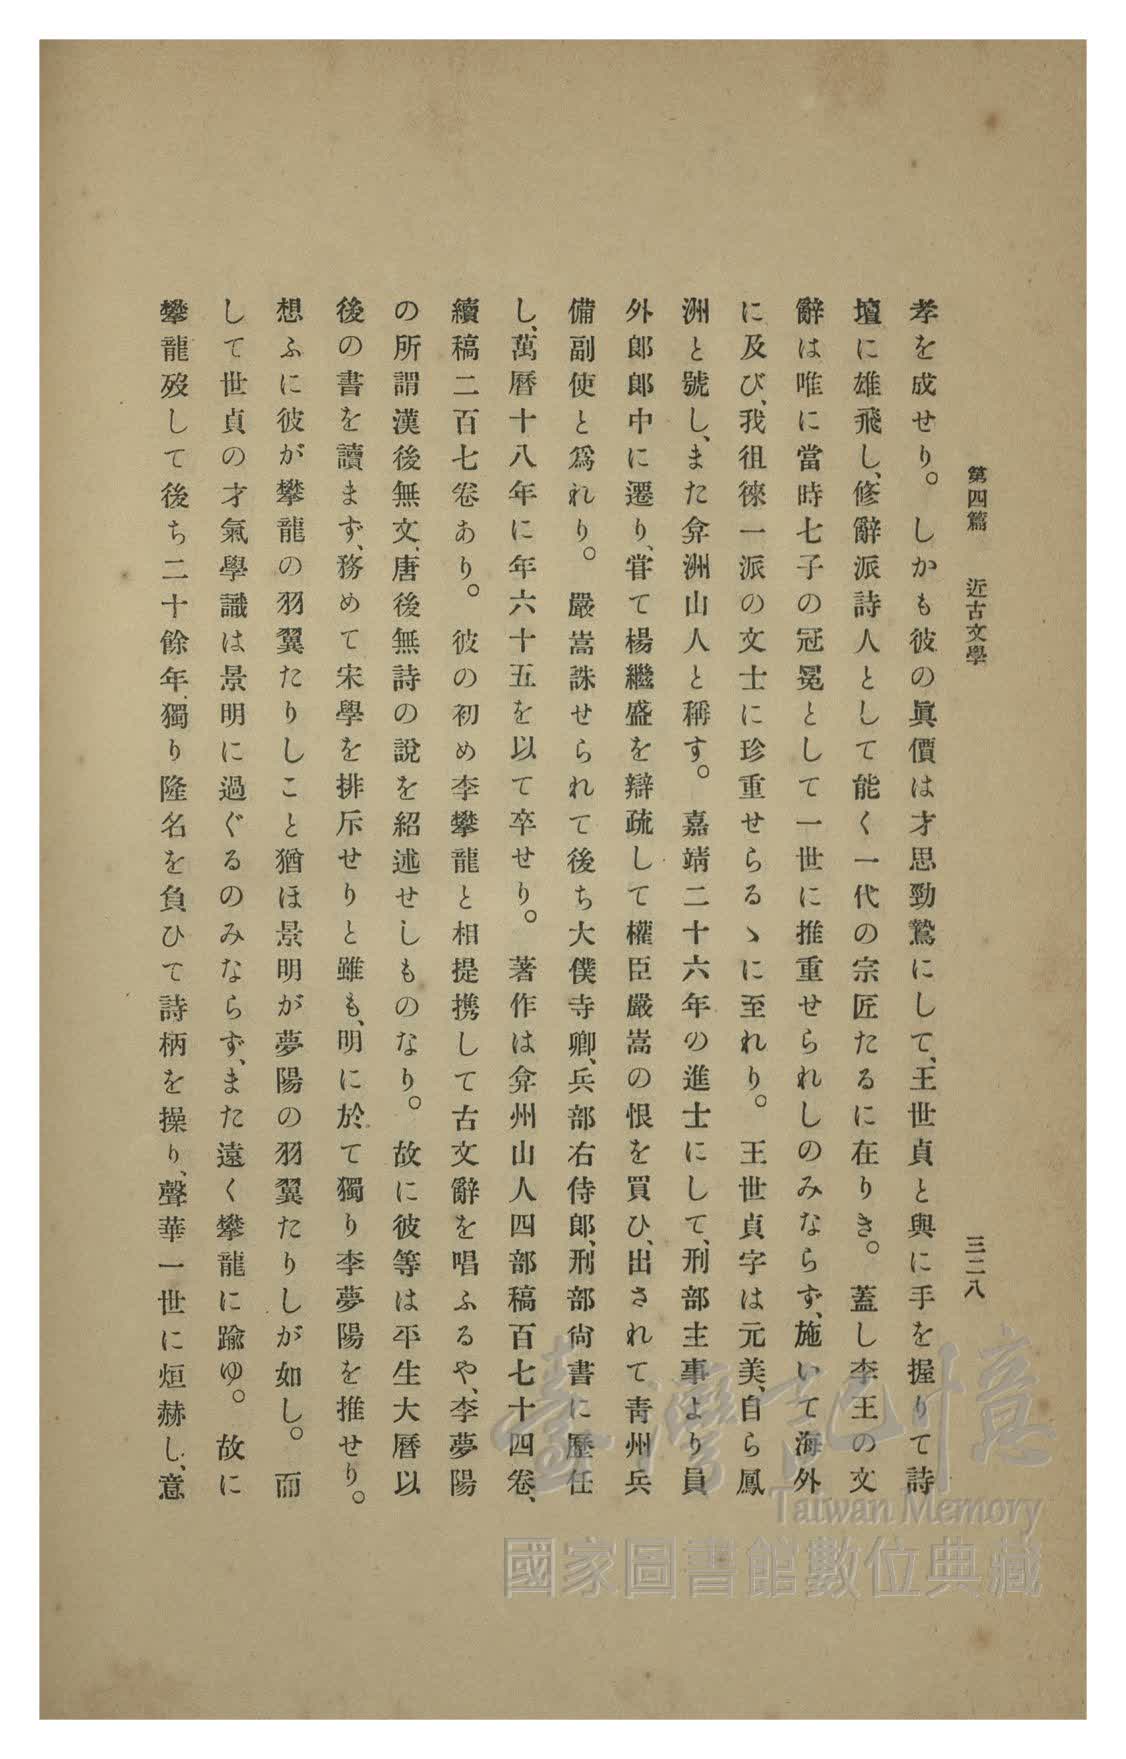 第四篇　近古文學　三二八
孝を成せり。しかも彼の眞價は才思勁鷙にして、王世貞と與に手を握りて詩
壇に雄飛し、修辭派詩人として能く一代の宗匠たるに在りき。蓋し李王の文
辭は唯に當時七子の冠冕として一世に推重せられしのみならず、施いて海外
に及び、我徂徠一派の文士に珍重せらるゝに至れり。王世貞字は元美、自ら鳳
洲と號し、また弇洲山人と稱す。嘉靖二十六年の進士にして、刑部主事より員
外郎郎中に遷り、甞て楊繼盛を辯疏して權臣嚴嵩の恨を買ひ、出されて青州兵
備副使と爲れり。嚴嵩誅せられて後ち大僕寺卿、兵部右侍郎、刑部尙書に歷任
し、萬曆十八年に年六十五を以て卒せり。著作は弇州山人四部稿百七十四卷、
續稿二百七卷あり。彼の初め李攀龍と相提携して古文辭を唱ふるや、李夢陽
の所謂漢後無文、唐後無詩の說を紹述せしものなり。故に彼等は平生大曆以
後の書を讀まず、務めて宋學を排斥せりと雖も、明に於て獨り李夢陽を推せり。
想ふに彼が攀龍の羽翼たりしこと猶ほ景明が夢陽の羽翼たりしが如し。而
して世貞の才氣學識は景明に過ぐるのみならず、また遠く攀龍に踰ゆ。故に
攀龍歿して後ち二十餘年、獨り隆名を負ひて詩柄を操り、聲華一世に烜赫し、意
臺灣記憶
Taiwan Memory
國家圖書館數位典藏